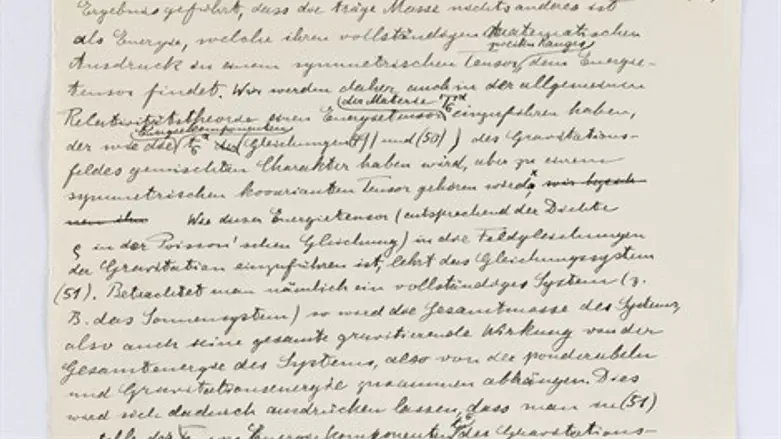 Ergebnis geführt, dass die träge Masse nichts anderes ist
als Energie, welche ihren vollständigen mathematischen
zweiten Ranges
Ausdruck in einem symmetrischen Tensor, dem Energie-
tensor findet. Wir werden daher auch in der allgemeinen
der Materie T
Relativitätstheorie einen Energietensor einzuführen haben,
Energiekomponenten
der wie die t Gleichungen und (50)) des Gravitations-
feldes gemischten Charakter haben wird, aber zu einem
symmetrischen kovarianten Tensor gehören wird
Wie dieser Energietensor (entsprechend der Dichte
ρ in der Poisson'schen Gleichung) in die Feldgleichungen
der Gravitation einzuführen ist, lehrt das Gleichungssystem
(51). Betrachtet man nämlich ein vollständiges System (z.
B. das Sonnensystem) so wird die Gesamtmasse des Systems,
also auch seine gesamte gravitierende Wirkung von der
Gesamtenergie des Systems, also von der ponderabeln
und Gravitationsenergie zusammen abhängen. Dies
wird sich dadurch ausdrücken lassen, dass man in (51)
der Energiekomponenten des Gravitations-